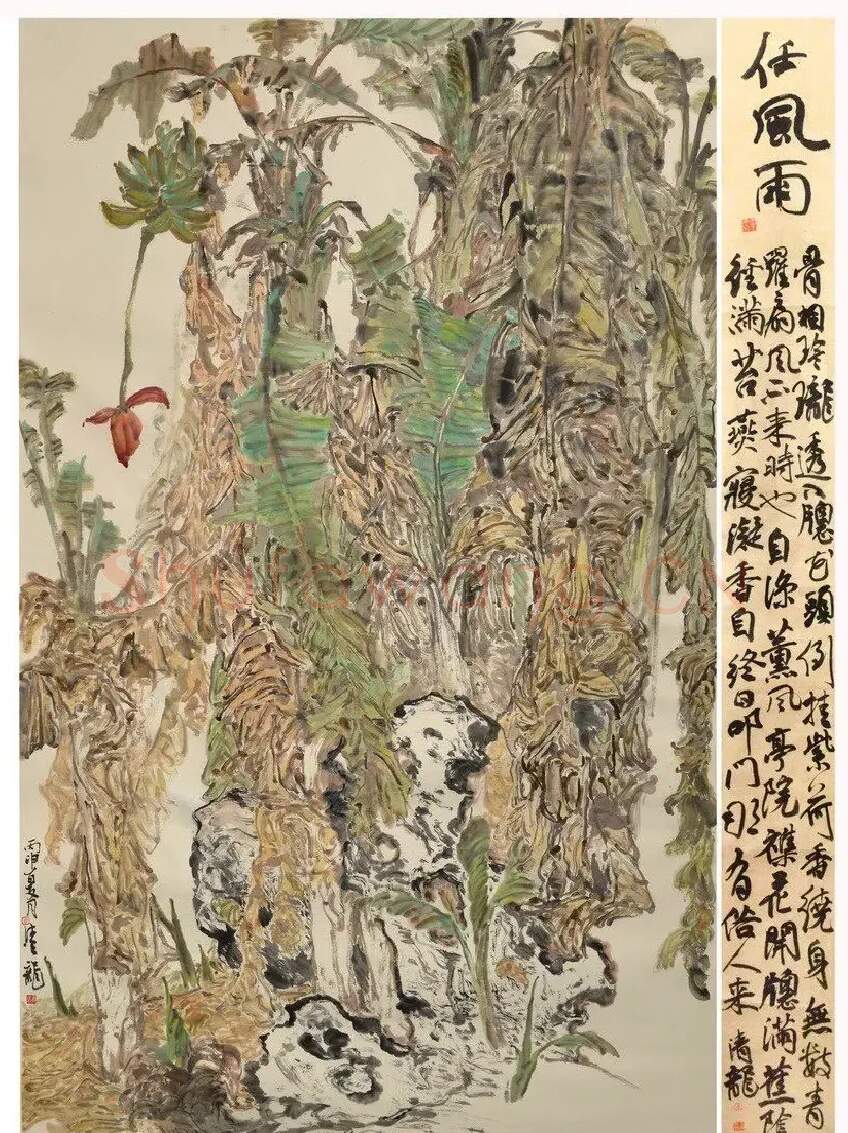 任風雨
骨相玲瓏透八牕花頭倒挂紫荷香繞身無數青
羅扇風不來時也自涼薰風亭院襍花開牕滿蕉陰
徑滿苔燕寢凝香自終日叩門那有俗人來 清龍
丙申夏月清龍
shufawang.cn